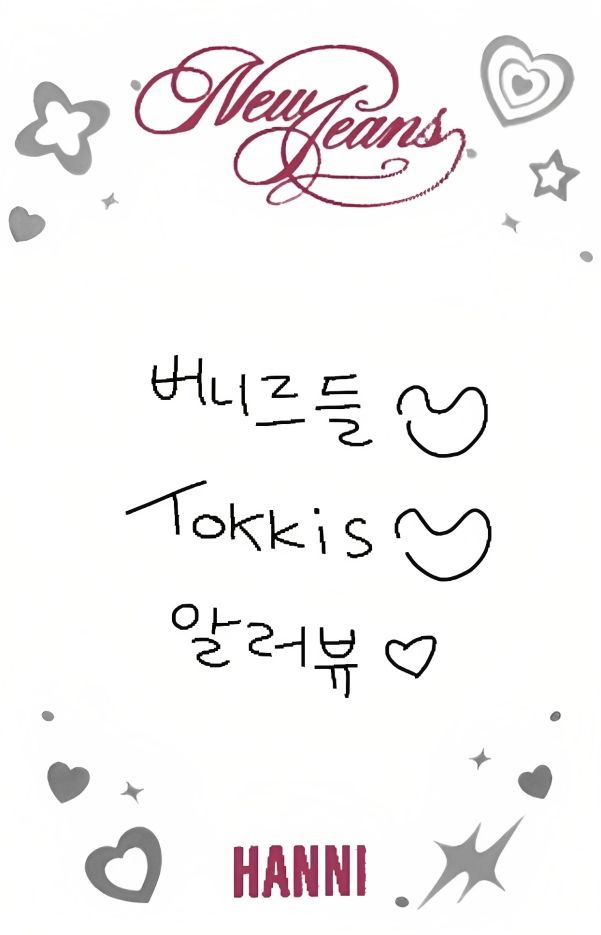 New Jeans
버니르들
Tokkis
알러뷰
HANNI